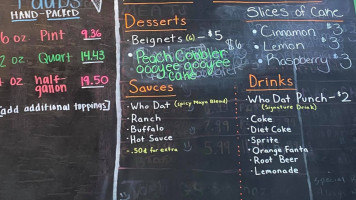 HAND-PACKED
oz Pint 9.36
oz Quart 14.43
oz half gallon 19.50
[add additional toppings]
Desserts
• Beignets (6) - $5
• Peach Cobbler $6
ooeyee gooyee
cake
Sauces
• Who Dat (spicy Mayo Blend)
• Ranch
• Buffalo
• Hot Sauce
- .50¢ for extra
Slices of Cake
• Cinnamon $3
• Lemon $3
• Raspberry $3
Drinks
Who Dat Punch - $2
(Signature Drink)
• Coke
• Diet Coke
• Sprite
• Orange Fanta
• Root Beer
• Lemonade